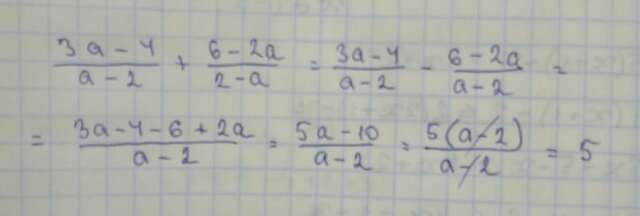 (3a-4)/(a-2) + (6-2a)/(2-a) = (3a-4)/(a-2) - (6-2a)/(a-2) =
= (3a-4-6+2a)/(a-2) = (5a-10)/(a-2) = 5(a-2)/(a-2) = 5